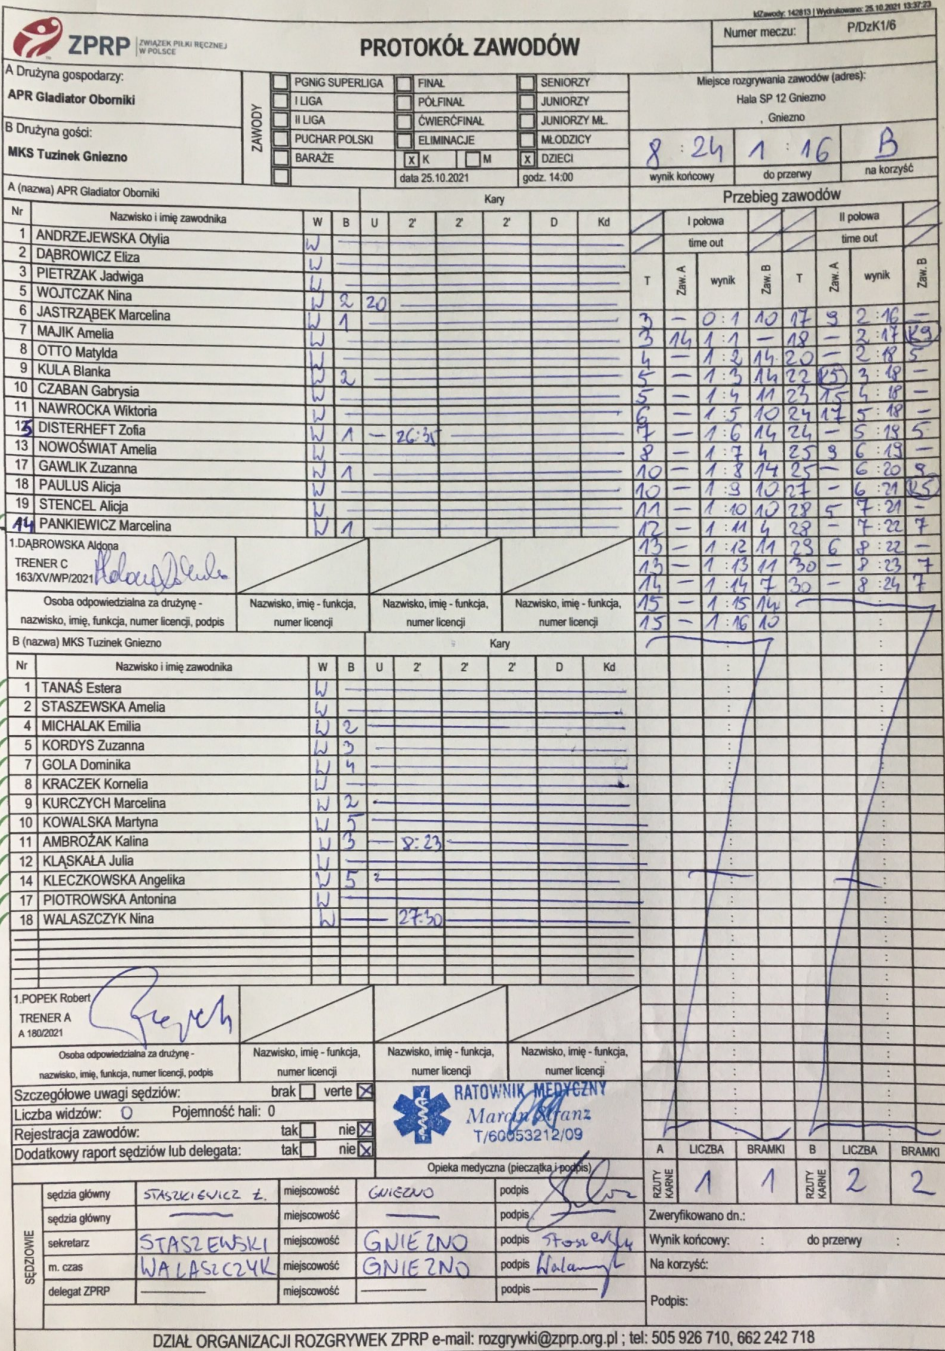 idZawody: 142813 | Wydrukowano: 25.10.2021 13:37:23
ZPRP ZWIĄZEK PIŁKI RĘCZNEJ W POLSCE
PROTOKÓŁ ZAWODÓW
Numer meczu: P/DzK1/6
A Drużyna gospodarzy:
APR Gladiator Oborniki
B Drużyna gości:
MKS Tuzinek Gniezno
ZAWODY
PGNiG SUPERLIGA FINAŁ SENIORZY
I LIGA PÓŁFINAŁ JUNIORZY
II LIGA ĆWIERĆFINAŁ JUNIORZY MŁ.
PUCHAR POLSKI ELIMINACJE MŁODZICY
BARAŻE X K M X DZIECI
data 25.10.2021 godz. 14:00
Miejsce rozgrywania zawodów (adres):
Hala SP 12 Gniezno
, Gniezno
8 : 24 1 : 16 B
wynik końcowy do przerwy na korzyść
A (nazwa) APR Gladiator Oborniki Kary
Nr Nazwisko i imię zawodnika W B U 2' 2' 2' D Kd
1 ANDRZEJEWSKA Otylia W
2 DĄBROWICZ Eliza W
3 PIETRZAK Jadwiga W
5 WOJTCZAK Nina W 2 20
6 JASTRZĄBEK Marcelina W 1
7 MAJIK Amelia W
8 OTTO Matylda W
9 KULA Blanka W 2
10 CZABAN Gabrysia W
11 NAWROCKA Wiktoria W
15 DISTERHEFT Zofia W 1 – 26:35
13 NOWOŚWIAT Amelia W
17 GAWLIK Zuzanna W 1
18 PAULUS Alicja W
19 STENCEL Alicja W
14 PANKIEWICZ Marcelina W 1
1.DĄBROWSKA Aldona
TRENER C
163/XV/WP/2021
Osoba odpowiedzialna za drużynę - Nazwisko, imię - funkcja, Nazwisko, imię - funkcja, Nazwisko, imię - funkcja,
nazwisko, imię, funkcja, numer licencji, podpis numer licencji numer licencji numer licencji
B (nazwa) MKS Tuzinek Gniezno Kary
Nr Nazwisko i imię zawodnika W B U 2' 2' 2' D Kd
1 TANAŚ Estera W
2 STASZEWSKA Amelia W
4 MICHALAK Emilia W 2
5 KORDYS Zuzanna W 3
7 GOLA Dominika W 4
8 KRACZEK Kornelia W
9 KURCZYCH Marcelina W 2
10 KOWALSKA Martyna W 5
11 AMBROŻAK Kalina W 3 8:23
12 KLĄSKAŁA Julia W
14 KLECZKOWSKA Angelika W 5
17 PIOTROWSKA Antonina W
18 WALASZCZYK Nina W 27:30
1.POPEK Robert
TRENER A
A 180/2021
Osoba odpowiedzialna za drużynę - Nazwisko, imię - funkcja, Nazwisko, imię - funkcja, Nazwisko, imię - funkcja,
nazwisko, imię, funkcja, numer licencji, podpis numer licencji numer licencji numer licencji
Przebieg zawodów
I połowa II połowa
time out time out
T Zaw. A wynik Zaw. B T Zaw. A wynik Zaw. B
3 – 0:1 10 17 9 2:16 –
3 14 1:1 – 18 – 2:17 K9
4 – 1:2 14 20 – 2:18 5
5 – 1:3 14 22 K5 3:18 –
5 – 1:4 11 23 15 4:18 –
6 – 1:5 10 24 17 5:18 –
7 – 1:6 14 24 – 5:19 5
8 – 1:7 4 25 9 6:19 –
10 – 1:8 14 25 – 6:20 9
10 – 1:9 10 27 – 6:21 K5
11 – 1:10 10 28 5 7:21 –
12 – 1:11 4 28 – 7:22 7
13 – 1:12 11 29 6 8:22 –
13 – 1:13 11 30 – 8:23 7
14 – 1:14 7 30 – 8:24 7
15 – 1:15 14
15 – 1:16 10
Szczegółowe uwagi sędziów: brak verte X
Liczba widzów: 0 Pojemność hali: 0
Rejestracja zawodów: tak nie X
Dodatkowy raport sędziów lub delegata: tak nie X
RATOWNIK MEDYCZNY
T/60053212/09
Opieka medyczna (pieczątka i podpis)
A LICZBA BRAMKI B LICZBA BRAMKI
RZUTY KARNE 1 1 RZUTY KARNE 2 2
SĘDZIOWIE
sędzia główny STASZKIEWICZ Ł. miejscowość GNIEZNO podpis
sędzia główny – miejscowość – podpis
sekretarz STASZEWSKI miejscowość GNIEZNO podpis
m. czas WALASZCZYK miejscowość GNIEZNO podpis
delegat ZPRP – miejscowość – podpis –
Zweryfikowano dn.:
Wynik końcowy: : do przerwy :
Na korzyść:
Podpis:
DZIAŁ ORGANIZACJI ROZGRYWEK ZPRP e-mail: rozgrywki@zprp.org.pl ; tel: 505 926 710, 662 242 718